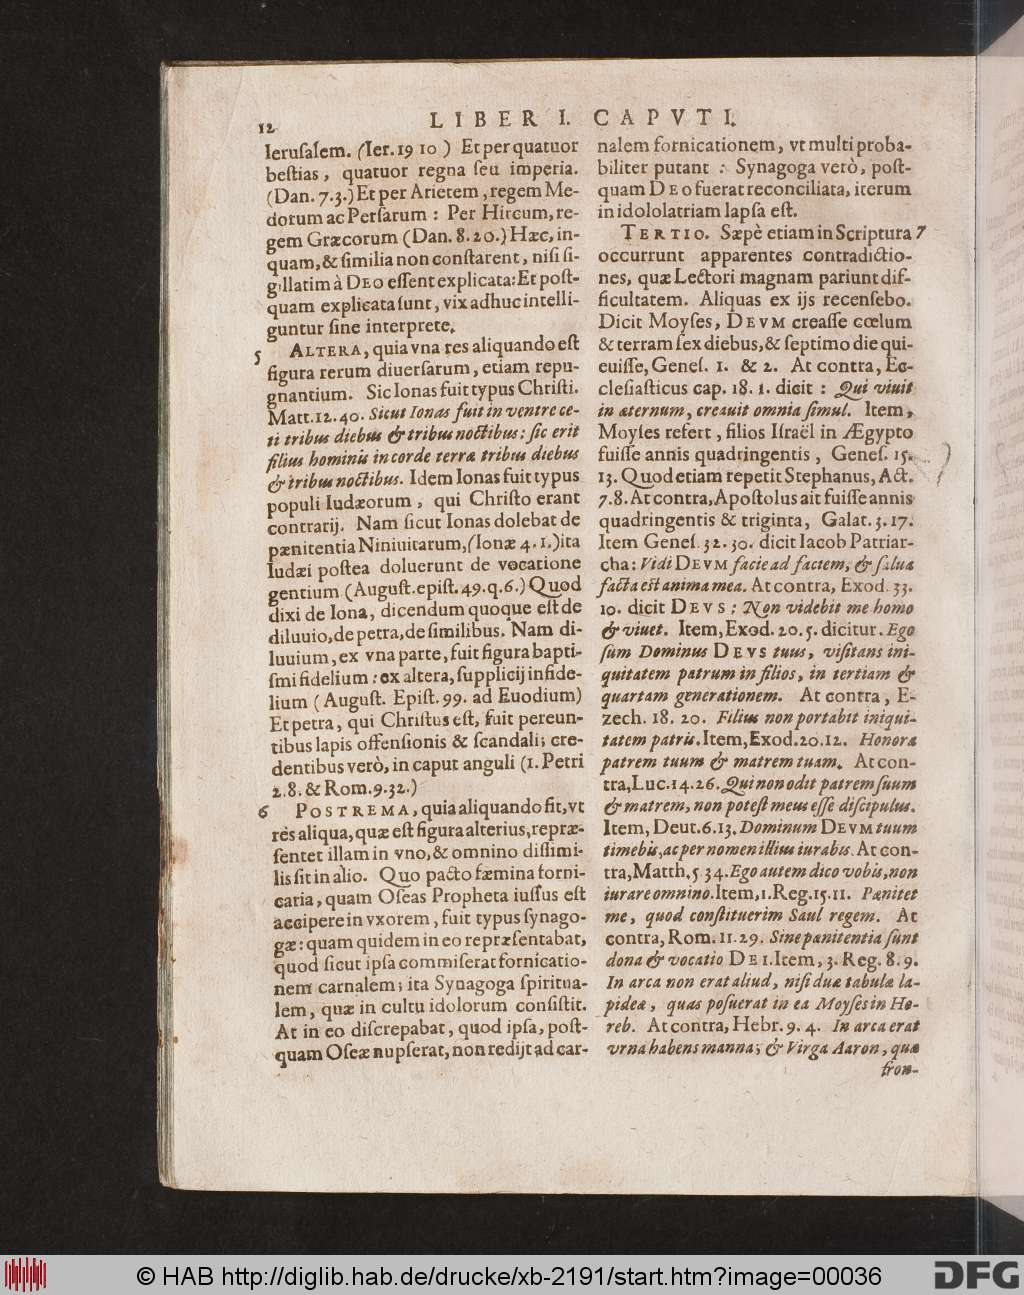 12
LIBER I. CAPVT I.
Ieruſalem. (Ier. 19 10 ) Et per quatuor
beſtias, quatuor regna ſeu imperia.
(Dan. 7. 3.) Et per Arietem, regem Me-
dorum ac Perſarum : Per Hircum, re-
gem Græcorum (Dan. 8. 20.) Hæc, in-
quam, & ſimilia non conſtarent, niſi ſi-
gillatim à DEO eſſent explicata: Et poſt-
quam explicata ſunt, vix adhuc intelli-
guntur ſine interprete.
5 ALTERA, quia vna res aliquando eſt
figura rerum diuerſarum, etiam repu-
gnantium. Sic Ionas fuit typus Chriſti.
Matt. 12. 40. Sicut Ionas fuit in ventre ce-
ti tribus diebus & tribus noctibus: ſic erit
filius hominis in corde terræ tribus diebus
& tribus noctibus. Idem Ionas fuit typus
populi Iudæorum, qui Chriſto erant
contrarij. Nam ſicut Ionas dolebat de
pænitentia Niniuitarum, (Ionæ 4. 1.) ita
Iudæi poſtea doluerunt de vocatione
gentium (Auguſt. epiſt. 49. q. 6.) Quod
dixi de Iona, dicendum quoque eſt de
diluuio, de petra, de ſimilibus. Nam di-
luuium, ex vna parte, fuit figura bapti-
ſmi fidelium : ex altera, ſupplicij infide-
lium ( Auguſt. Epiſt. 99. ad Euodium)
Et petra, qui Chriſtus eſt, fuit pereun-
tibus lapis offenſionis & ſcandali; cre-
dentibus verò, in caput anguli (1. Petri
2. 8. & Rom. 9. 32.)
6 POSTREMA, quia aliquando fit, vt
res aliqua, quæ eſt figura alterius, repræ-
ſentet illam in vno, & omnino diſſimi-
lis ſit in alio. Quo pacto fæmina forni-
caria, quam Oſeas Propheta iuſſus eſt
accipere in vxorem, fuit typus ſynago-
gæ : quam quidem in eo repræſentabat,
quod ſicut ipſa commiſerat fornicatio-
nem carnalem; ita Synagoga ſpiritua-
lem, quæ in cultu idolorum conſiſtit.
At in eo diſcrepabat, quod ipſa, poſt-
quam Oſeæ nupſerat, non redijt ad car-
nalem fornicationem, vt multi proba-
biliter putant : Synagoga verò, poſt-
quam DEO fuerat reconciliata, iterum
in idololatriam lapſa eſt.
TERTIO. Sæpè etiam in Scriptura 7
occurrunt apparentes contradictio-
nes, quæ Lectori magnam pariunt dif-
ficultatem. Aliquas ex ijs recenſebo.
Dicit Moyſes, DEVM creaſſe cœlum
& terram ſex diebus, & ſeptimo die qui-
euiſſe, Geneſ. 1. & 2. At contra, Ec-
cleſiaſticus cap. 18. 1. dicit : Qui viuit
in æternum, creauit omnia ſimul. Item,
Moyſes refert, filios Iſraël in Ægypto
fuiſſe annis quadringentis, Geneſ. 15.
13. Quod etiam repetit Stephanus, Act.
7. 8. At contra, Apoſtolus ait fuiſſe annis
quadringentis & triginta, Galat. 3. 17.
Item Geneſ. 32. 30. dicit Iacob Patriar-
cha: Vidi DEVM facie ad faciem, & ſalua
facta est anima mea. At contra, Exod. 33.
10. dicit DEVS : Non videbit me homo
& viuet. Item, Exod. 20. 5. dicitur. Ego
ſum Dominus DEVS tuus, viſitans ini-
quitatem patrum in filios, in tertiam &
quartam generationem. At contra, E-
zech. 18. 20. Filius non portabit iniqui-
tatem patris. Item, Exod. 20. 12. Honora
patrem tuum & matrem tuam. At con-
tra, Luc. 14. 26. Qui non odit patrem ſuum
& matrem, non poteſt meus eſſe diſcipulus.
Item, Deut. 6. 13. Dominum DEVM tuum
timebis, ac per nomen illius iurabis. At con-
tra, Matth. 5 34. Ego autem dico vobis, non
iurare omnino. Item, 1. Reg. 15. 11. Pænitet
me, quod conſtituerim Saul regem. At
contra, Rom. 11. 29. Sine pænitentia ſunt
dona & vocatio DEI. Item, 3. Reg. 8. 9.
In arca non erat aliud, niſi duæ tabulæ la-
pideæ, quas poſuerat in ea Moyſes in Ho-
reb. At contra, Hebr. 9. 4. In arca erat
vrna habens manna; & Virga Aaron, quæ
fron-
© HAB http://diglib.hab.de/drucke/xb-2191/start.htm?image=00036
DFG